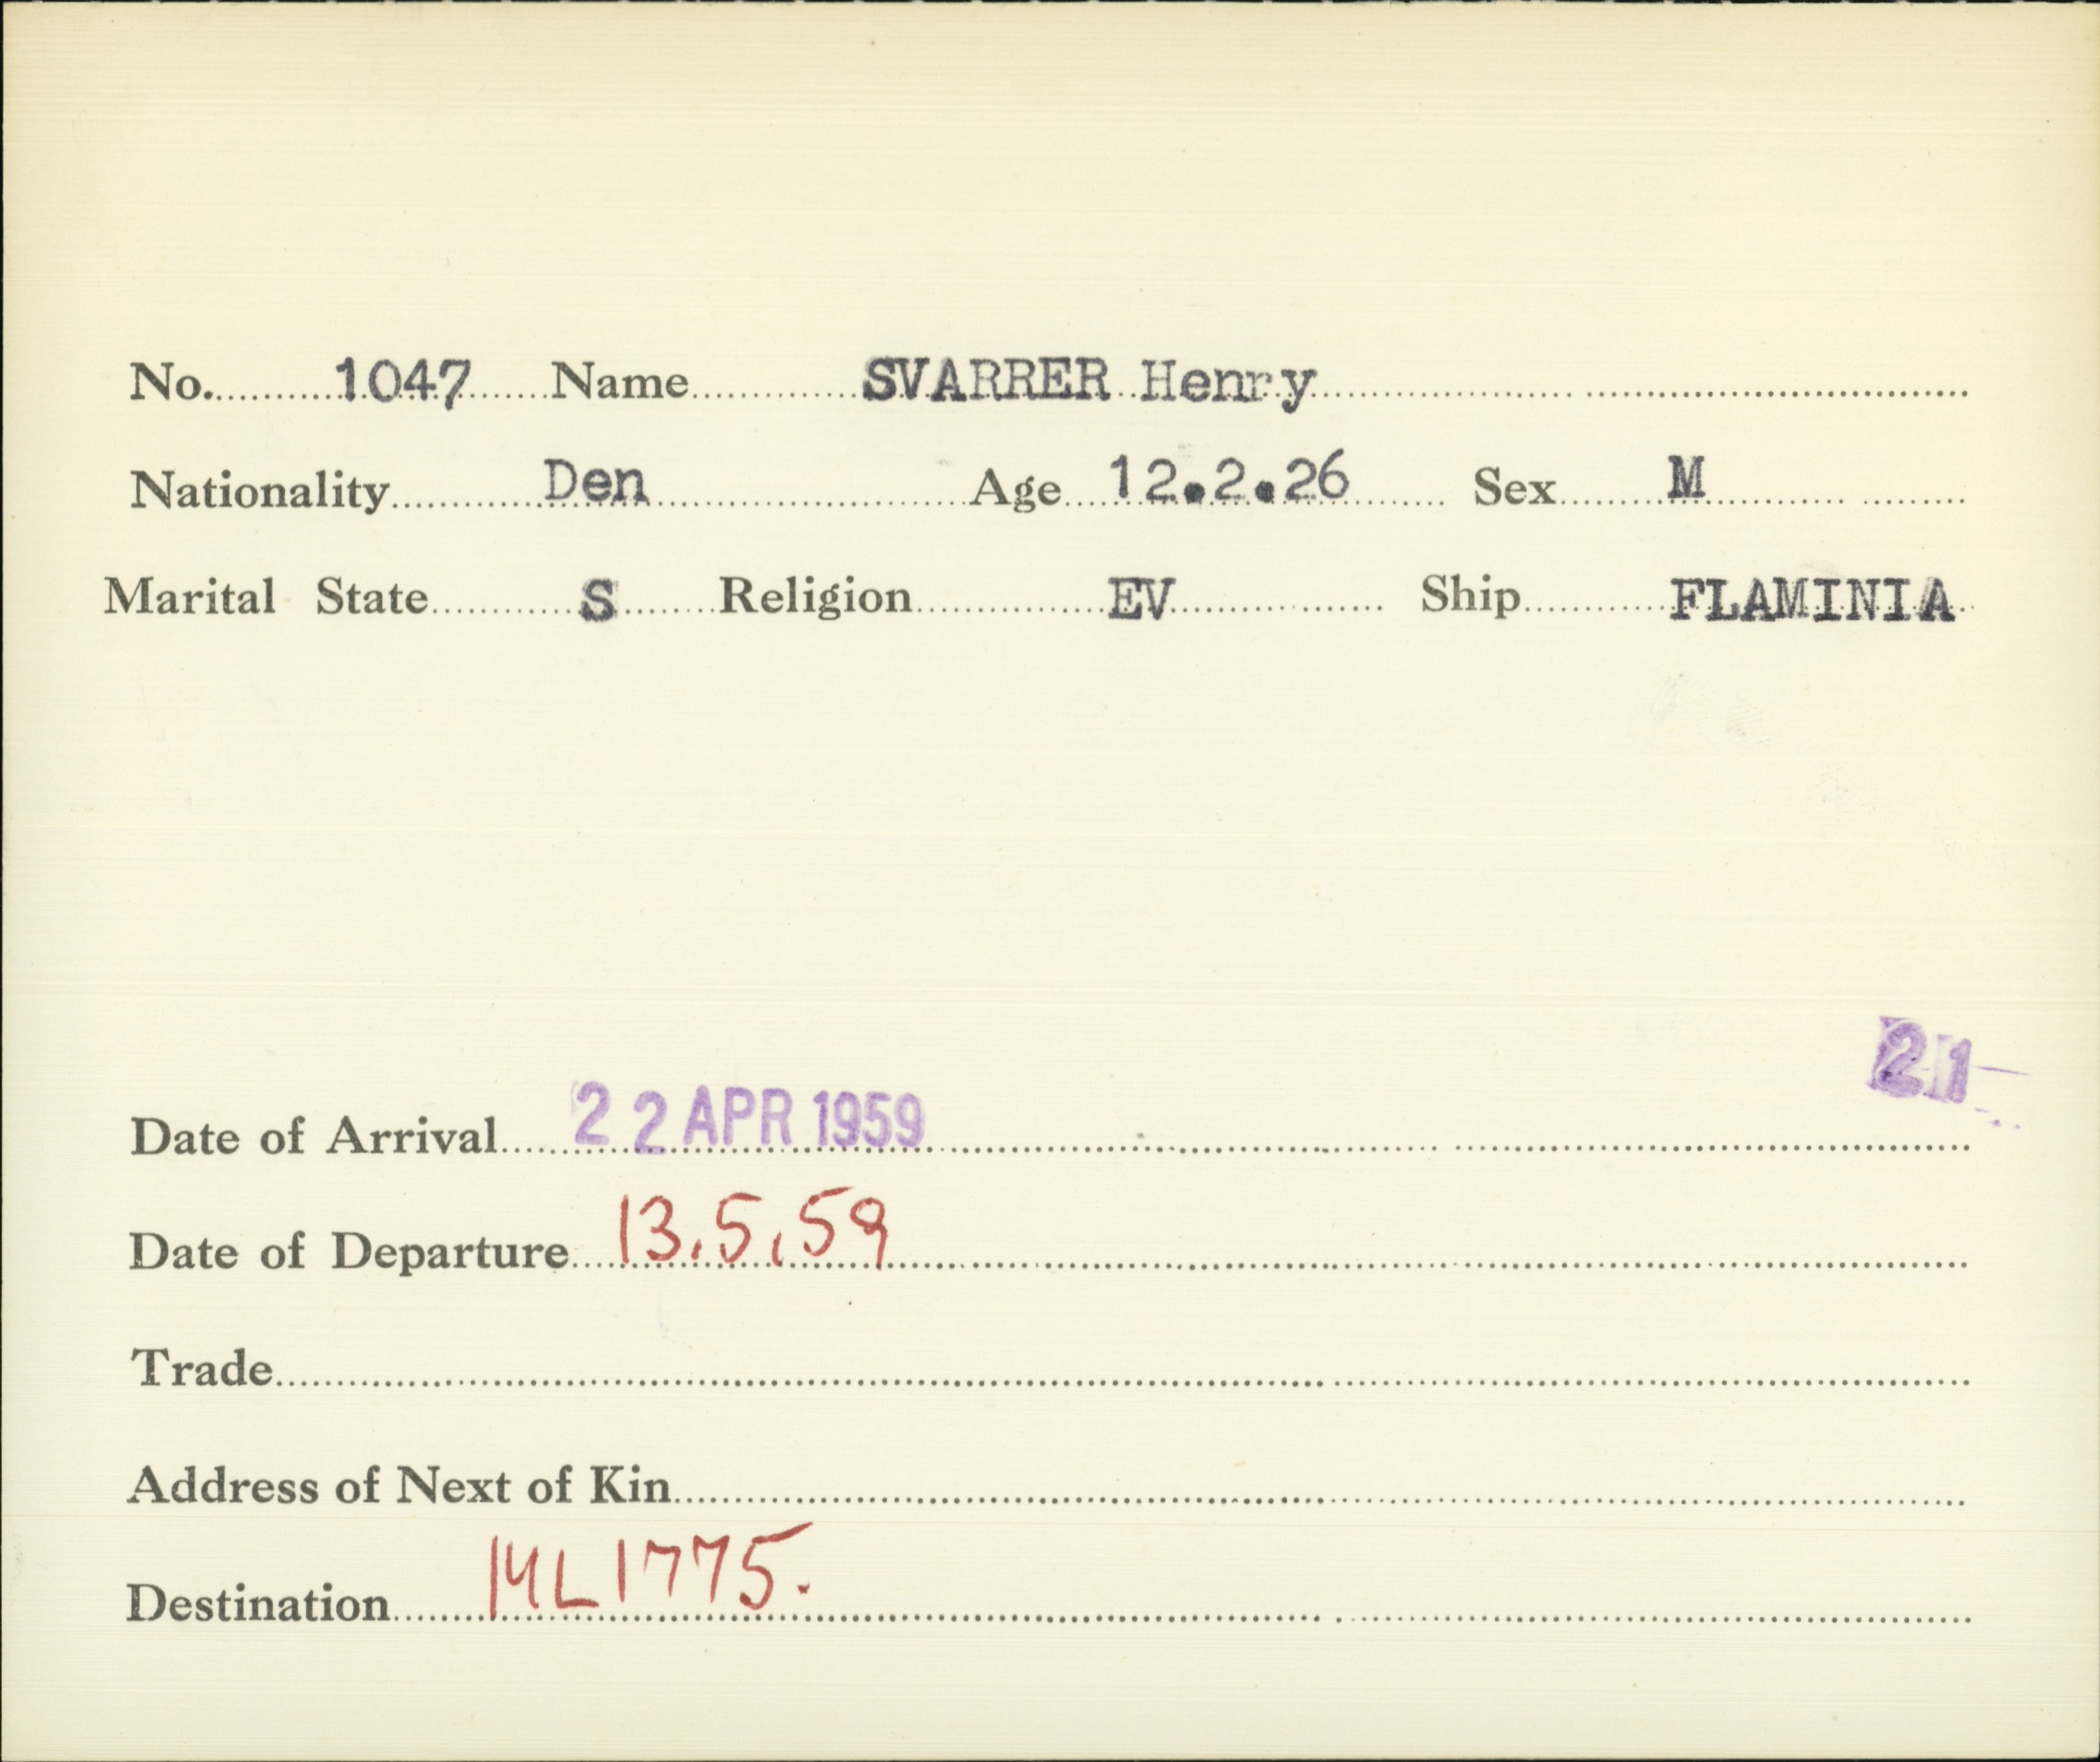 No. 1047 Name SVARRER Henry
Nationality Den Age 12.2.26 Sex M
Marital State S Religion EV Ship FLAMINIA
21
Date of Arrival 22 APR 1959
Date of Departure 13.5.59
Trade
Address of Next of Kin
Destination ML1775.